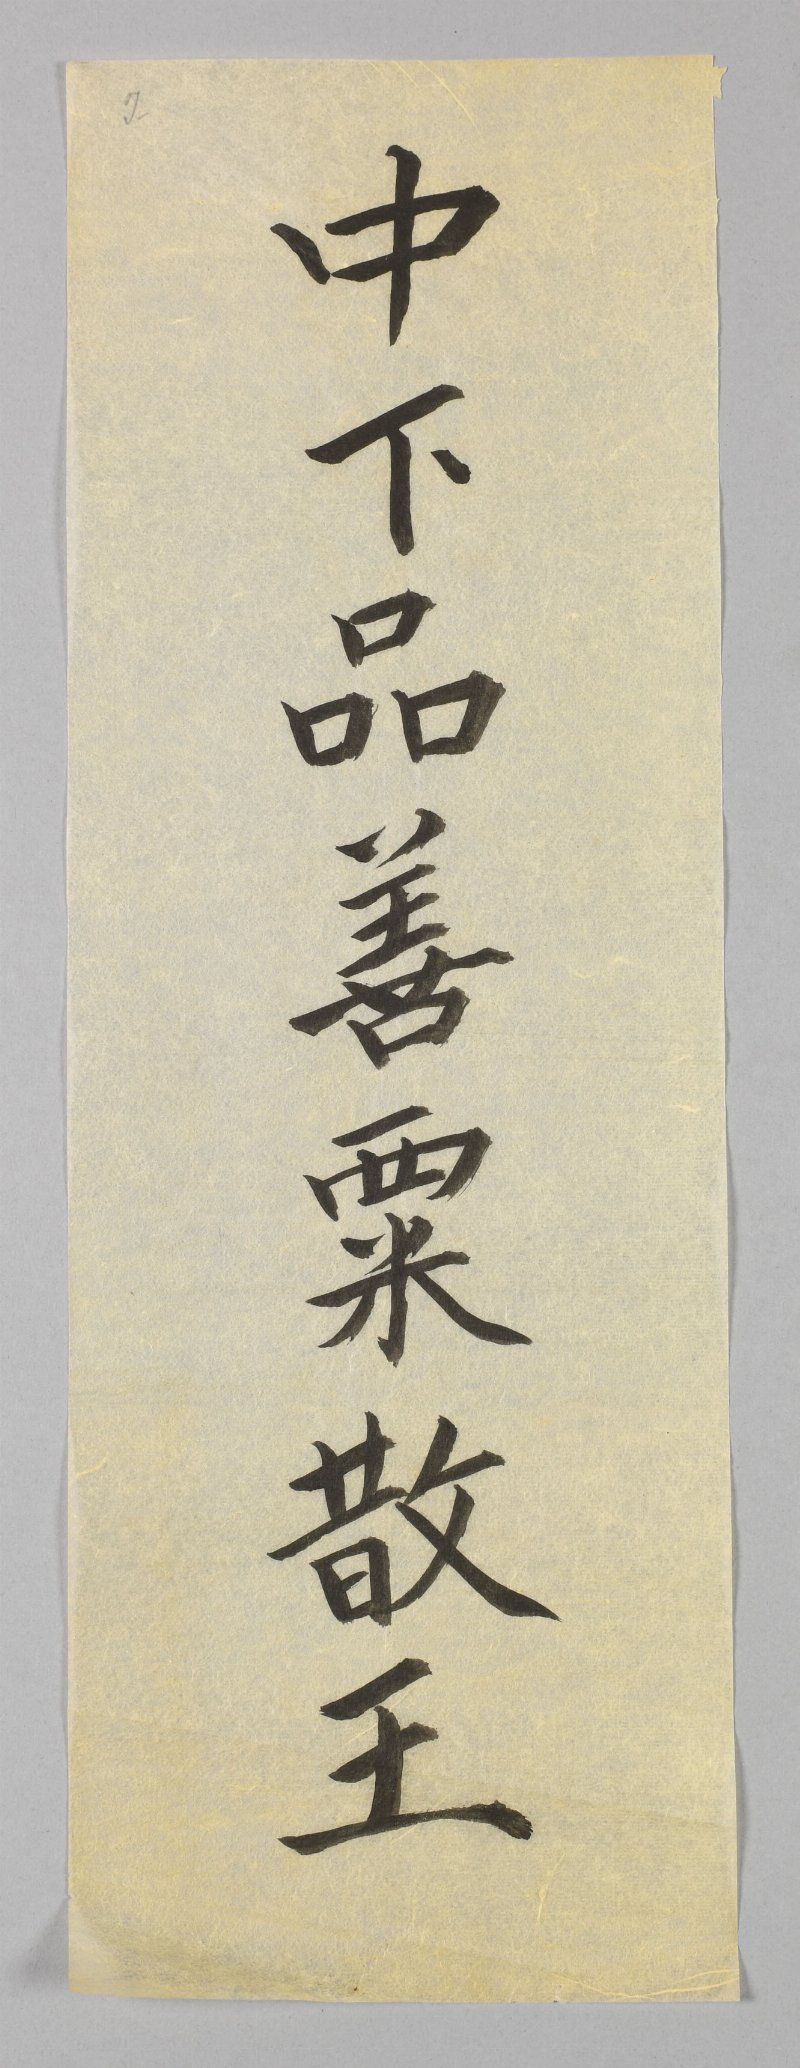 中下品善粟散王